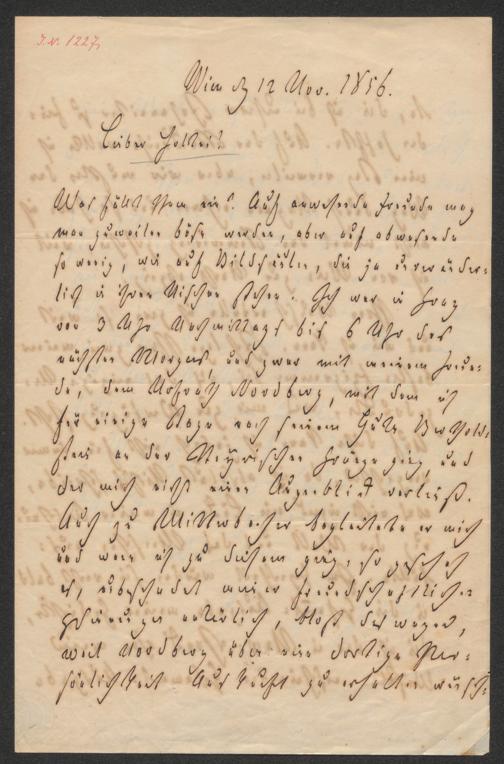 I.N. 1227,
Wien d 12 Nov. 1856.
Lieber Holtei!
Was fällt Ihnen ein? Auf anwesende Freunde mag
man zuweilen böse werden, aber auf abwesende
so wenig, wie auf Bildsäulen, die ja unveränder-
lich in ihren Nischen stehen. Ich war in Graz
von 3 Uhr Nachmittags bis 6 Uhr des
nächsten Morgens, und zwar mit meinem Freun-
de, dem Hofrath Nordberg, mit dem ich
für einige Tage nach seinem Gute
an der Steyrischen Gränze ging, und
der mich nicht einen Augenblick verließ.
Auch zu Mitterbacher begleitete er mich
und wenn ich zu diesem ging, so geschah
es, unbeschadet meiner freundschaftlichen
Gesinnungen natürlich, bloß deswegen,
weil Nordberg über eine dortige Per-
sönlichkeit Auskunft zu erhalten wünsch-